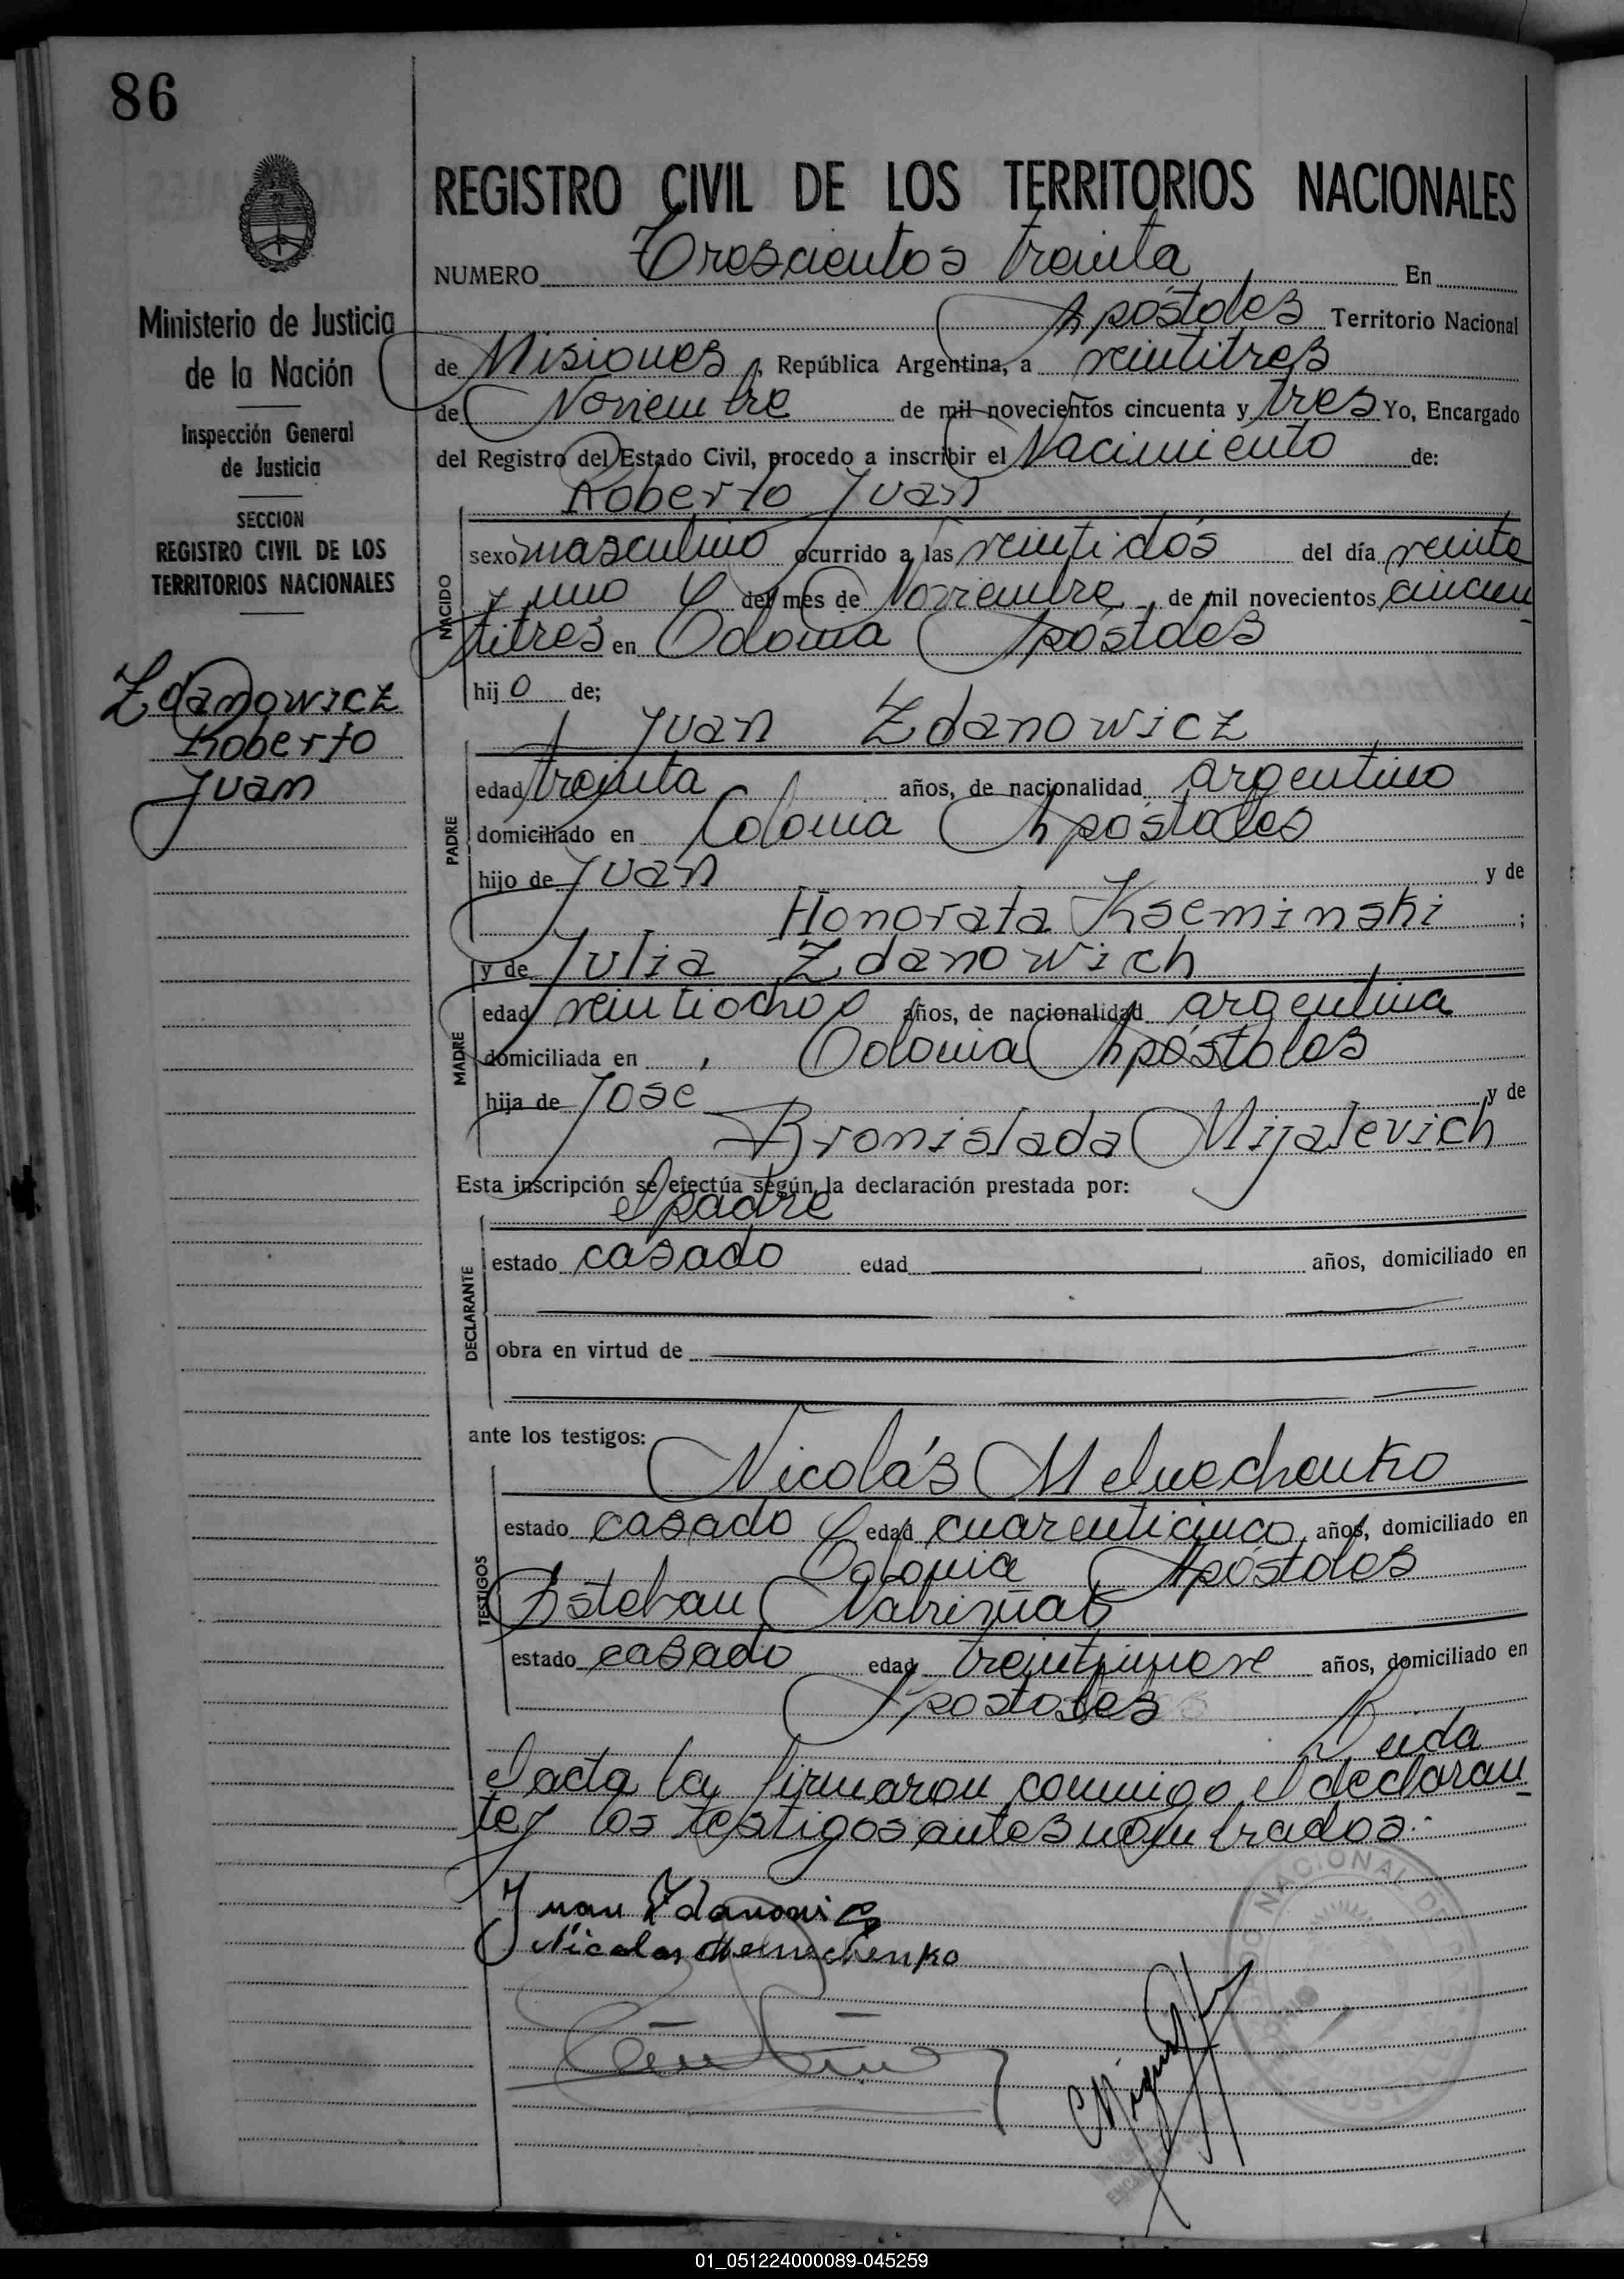 86
REGISTRO CIVIL DE LOS TERRITORIOS NACIONALES
NUMERO Trescientos treinta En
Apóstoles Territorio Nacional
de Misiones, República Argentina, a veintitres
de Noviembre de mil novecientos cincuenta y tres Yo, Encargado
del Registro del Estado Civil, procedo a inscribir el Nacimiento de:
Roberto Juan
Ministerio de Justicia
de la Nación
Inspección General
de Justicia
SECCION
REGISTRO CIVIL DE LOS
TERRITORIOS NACIONALES
Zdanowicz
Roberto
Juan
NACIDO
sexo masculino ocurrido a las veintidós del día veinte
y uno del mes de Noviembre de mil novecientos cincuen
titres en Colonia Apóstoles
hijo de;
Juan Zdanowicz
PADRE
edad treinta años, de nacionalidad argentino
domiciliado en Colonia Apóstoles
hijo de Juan y de
Honorata Kseminski ;
y de Julia Zdanowich
MADRE
edad veintiocho años, de nacionalidad argentina
domiciliada en Colonia Apóstoles
hija de Jose y de
Bronislada Mijalevich
Esta inscripción se efectúa según la declaración prestada por:
el padre
DECLARANTE
estado casado edad años, domiciliado en
obra en virtud de
ante los testigos:
Nicolás Melnechenko
TESTIGOS
estado casado edad cuarenticinco años, domiciliado en
Colonia Apóstoles
Esteban
estado casado edad treintinueve años, domiciliado en
Apostoles
Leida
el acta la firmaron conmigo el declaran
te y los testigos antes nombrados.
Juan Zdanovicz
Nicolas Melnechenko
Miguel
01_051224000089-045259